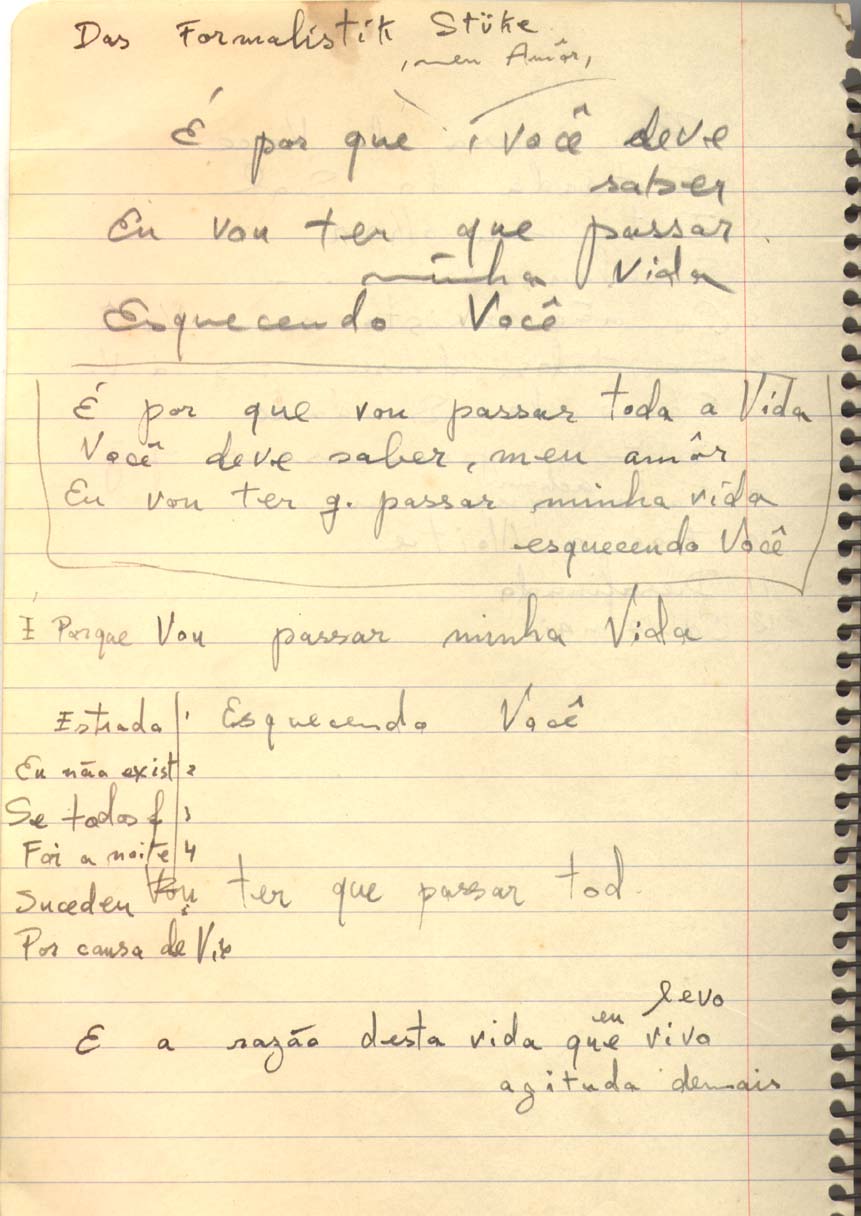 Das Formalistik Stüke
, meu Amôr,
É por que , Você deve
saber
Eu vou ter que passar
minha Vida
Esquecendo Você
É por que vou passar toda a Vida
Você deve saber, meu amôr
Eu vou ter q. passar minha vida
esquecendo Você
É Porque Vou passar minha Vida
Estrada 1 Esquecendo Você
Eu não exist 2
Se todos f 3
Foi a noite 4
Sucedeu Vou ter que passar tod
Por causa de
levo
E a razão desta vida que eu vivo
agitada demais